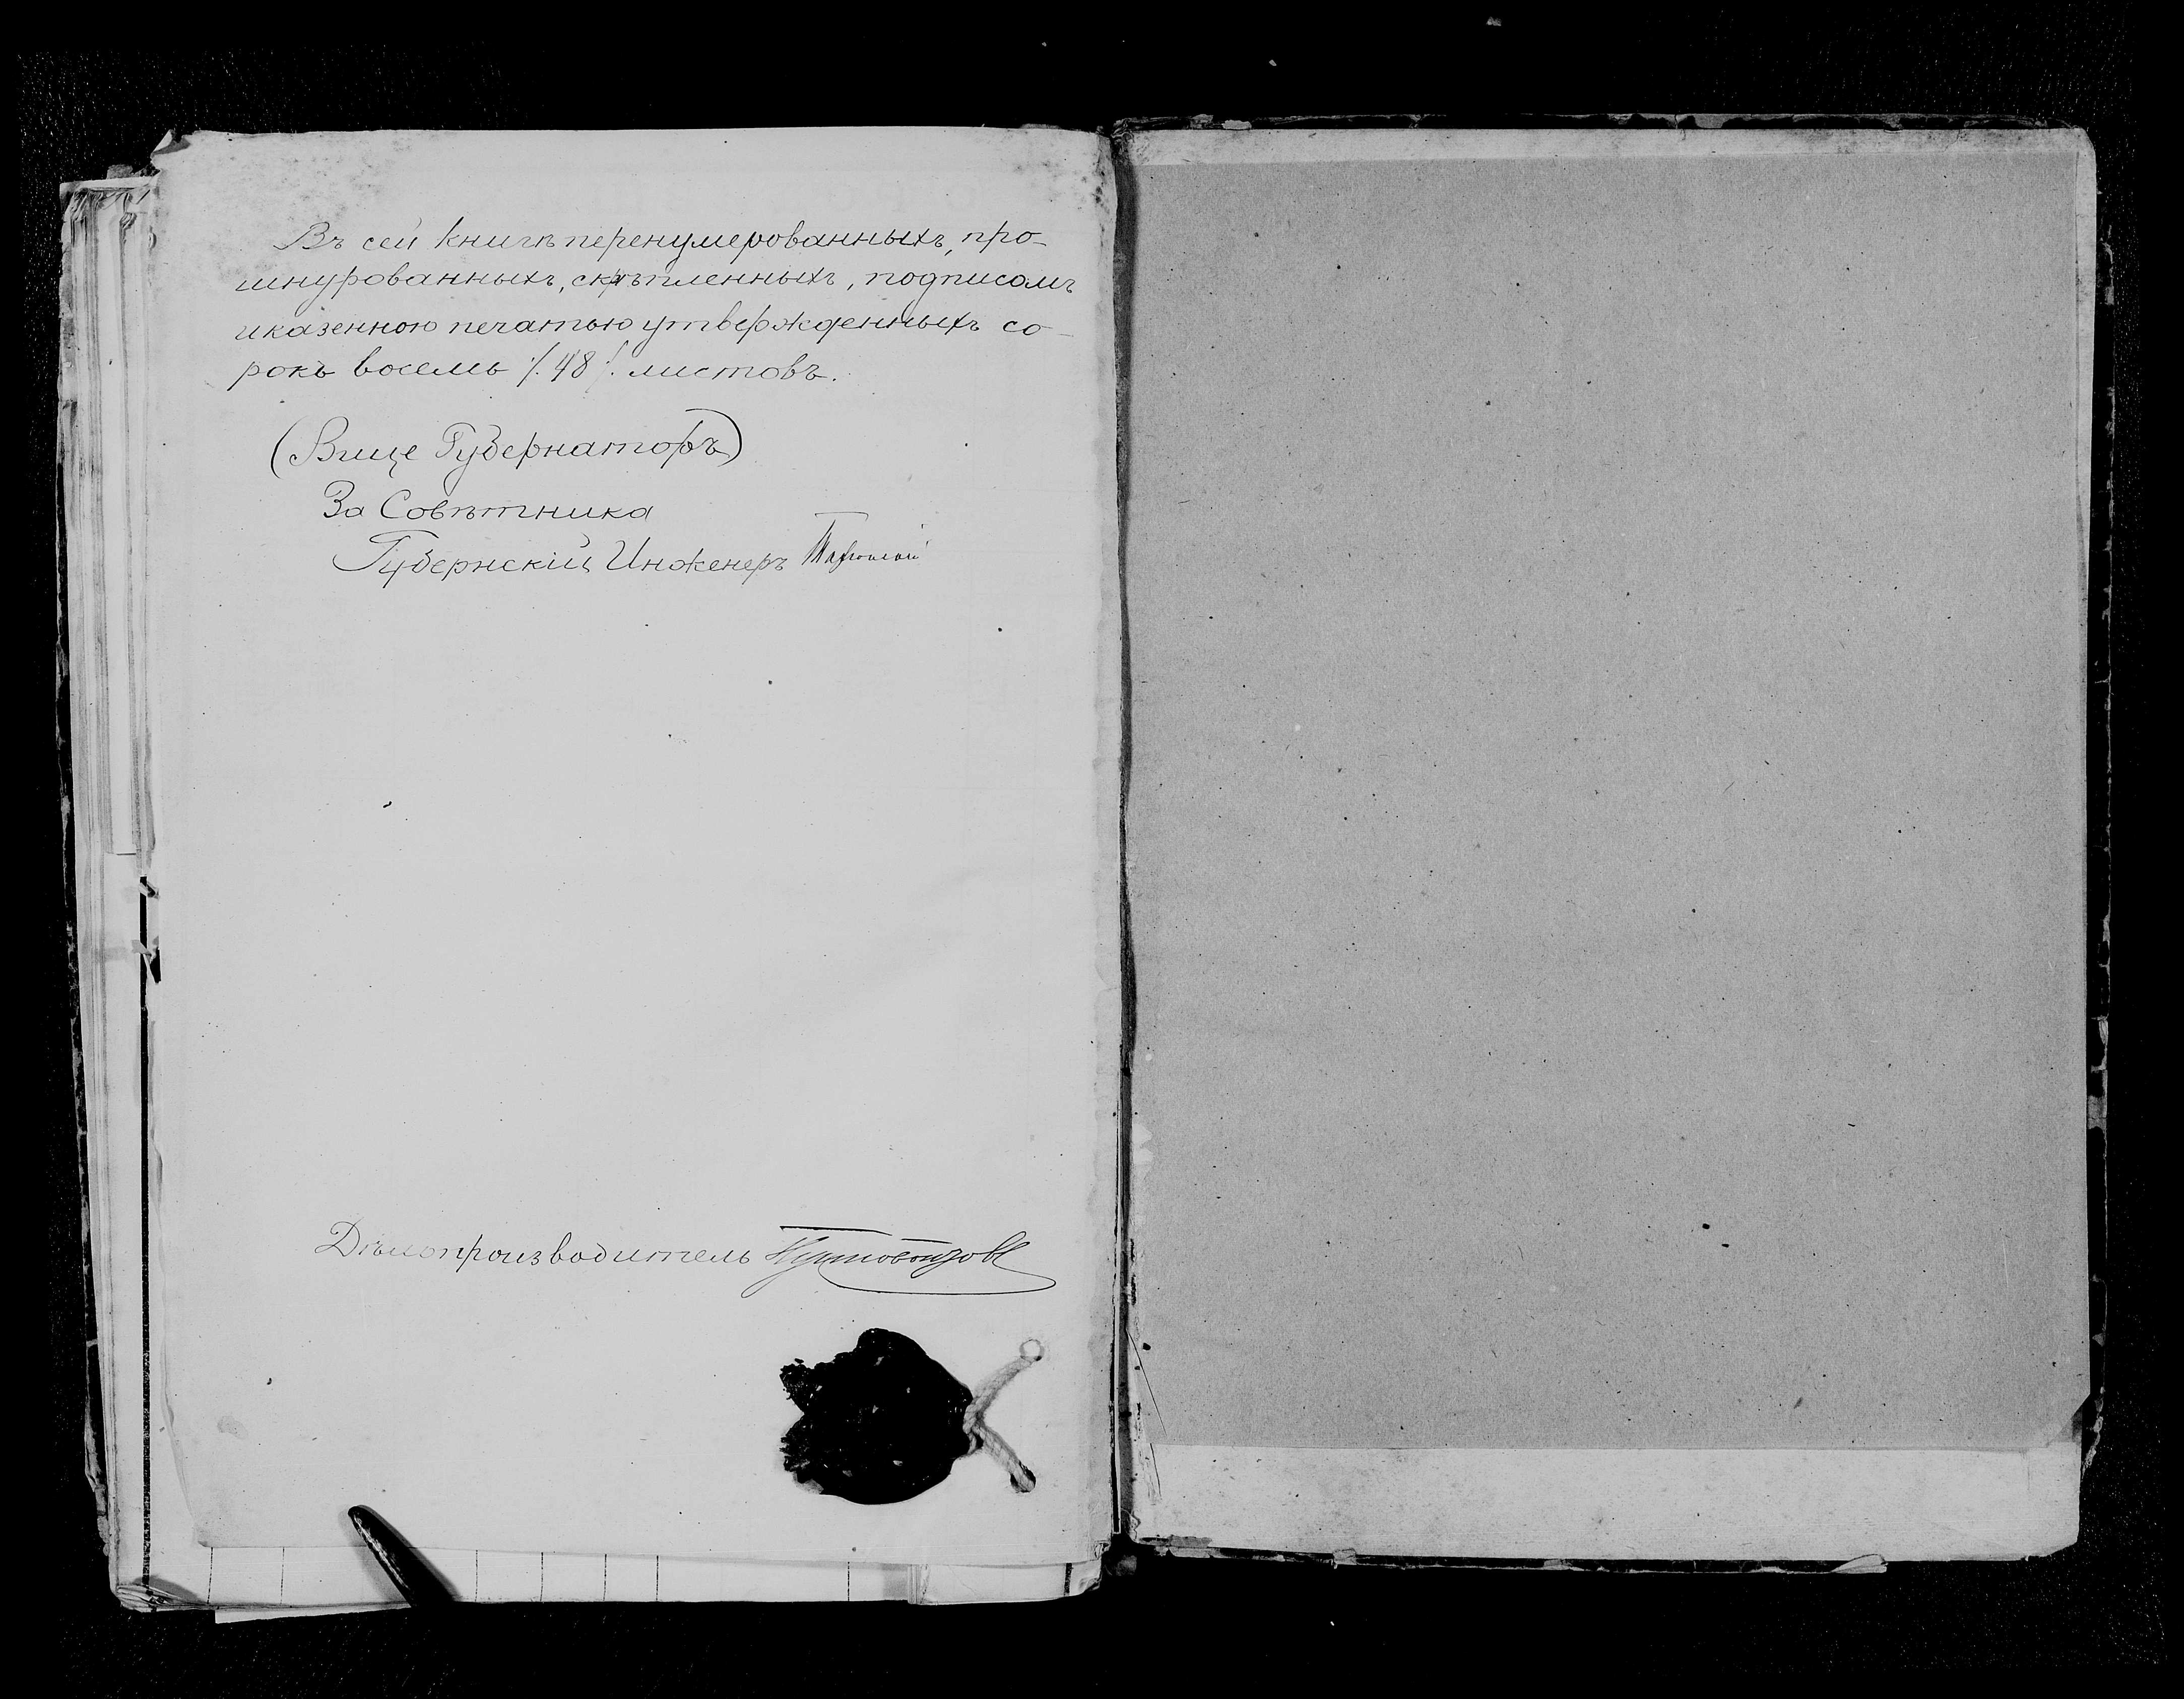 Въ сей книгѣ перенумерованныхъ, про-
шнурованныхъ, скрѣпленныхъ, подписомъ
и казенною печатью утвержденныхъ со-
рокъ восемь /. 48 /. листовъ.
(Вице Губернаторъ)
За Совѣтника
Губернскій Инженеръ
Дѣлопроизводитель